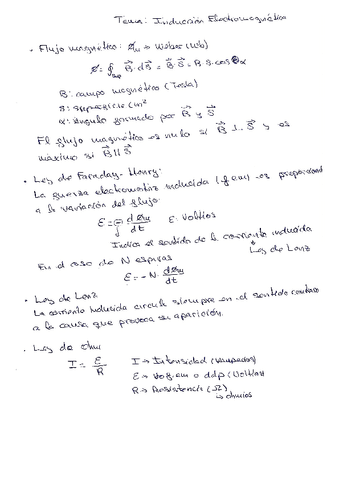 Tema: Inducción Electromagnética
• Flujo magnético: Øm → Weber (Wb)
Ø = ∮sup B⃗ · dS⃗ = B⃗ · S⃗ = B · S · cos α
B: campo magnético (Tesla)
S: superficie (m²
α: ángulo formado por B⃗ y S⃗
El flujo magnético es nulo si B⃗ ⊥ S⃗ y es
máximo si B⃗ || S⃗
• Ley de Faraday-Henry:
La fuerza electromotriz inducida (f.em) es proporcional
a la variación del flujo:
ε = - dØm/dt ε: Voltios
Indica el sentido de la corriente inducida
Ley de Lenz
En el caso de N espiras
ε = - N · dØm/dt
• Ley de Lenz
La corriente inducida circula siempre en el sentido contrario
a la causa que provoca su aparición.
• Ley de Ohm
I = ε/R I → Intensidad (Amperios)
ε → f.em o ddp (Voltios)
R → Resistencia (Ω)
↳ ohmios